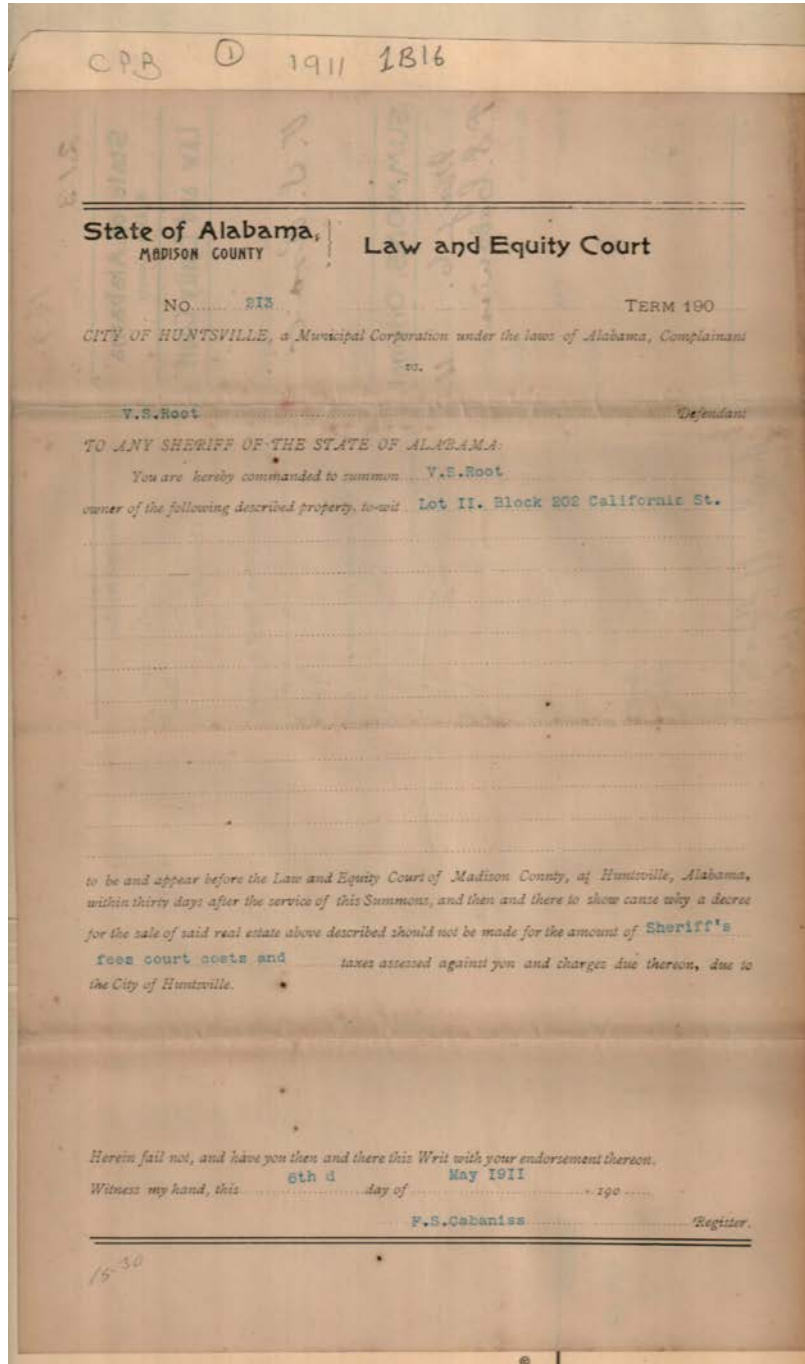 CPB ① 1911 1B16
State of Alabama, Law and Equity Court
MADISON COUNTY
No. 2I3 TERM 190
CITY OF HUNTSVILLE, a Municipal Corporation under the laws of Alabama, Complainant
vs.
V.S.Root Defendant
TO ANY SHERIFF OF THE STATE OF ALABAMA:
You are hereby commanded to summon V.S.Root
owner of the following described property, to-wit Lot II. Block 202 California St.
to be and appear before the Law and Equity Court of Madison County, at Huntsville, Alabama,
within thirty days after the service of this Summons, and then and there to show cause why a decree
for the sale of said real estate above described should not be made for the amount of Sheriff's
fees court costs and taxes assessed against you and charges due thereon, due to
the City of Huntsville.
Herein fail not, and have you then and there this Writ with your endorsement thereon.
Witness my hand, this 6th d day of May I9II 190
F.S.Cabaniss Register.
15 30